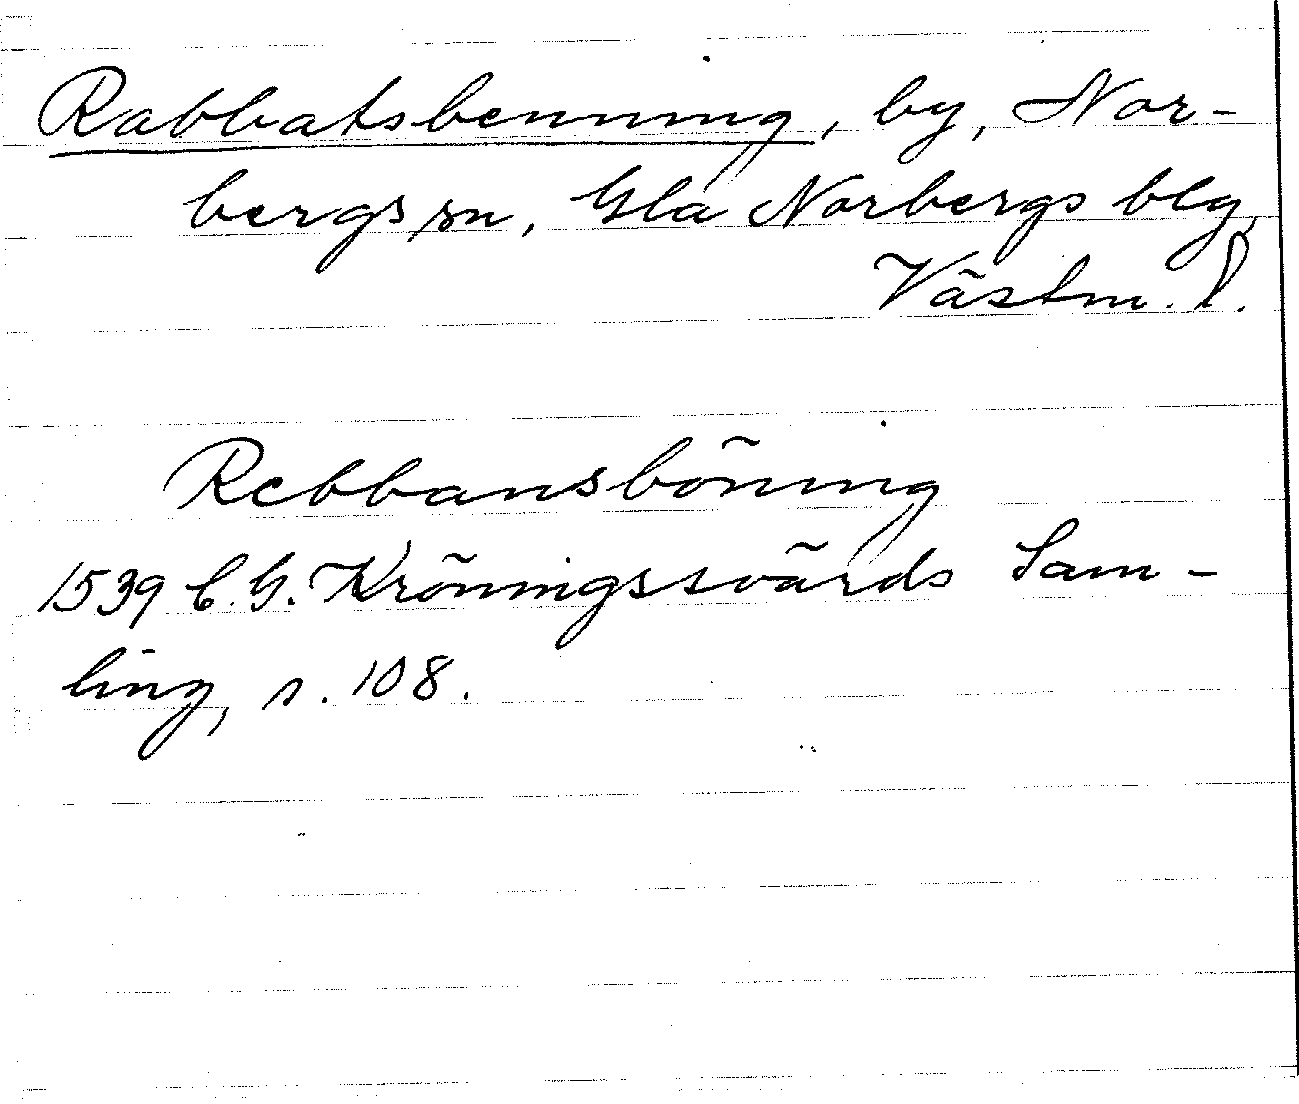 Rabbatsbenning, by, Nor-
bergs sn, Gla Norbergs blg,
Västm. l.
Rebbansböning
1539 C.G. Kröningssvärds Sam-
ling, s. 108.